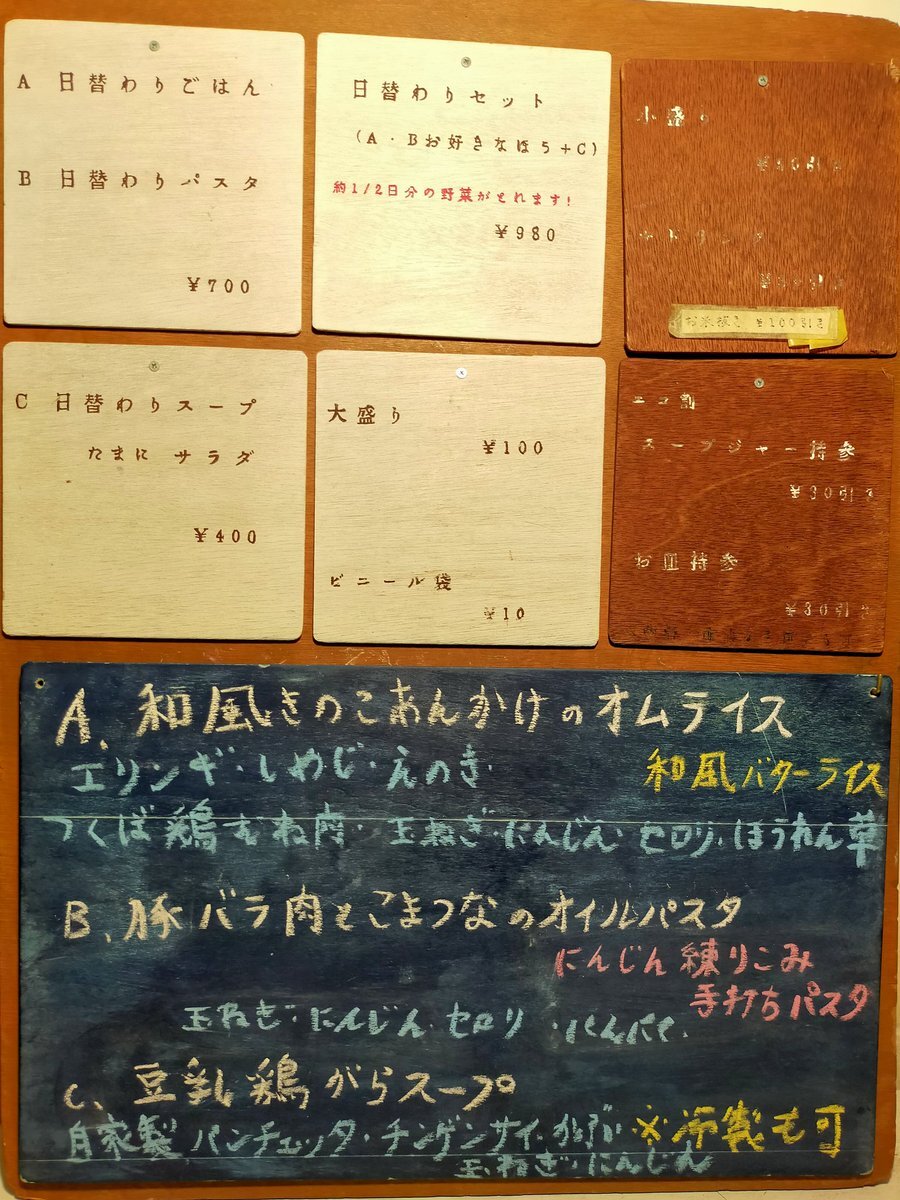 A 日替わりごはん
B 日替わりパスタ
¥700
日替わりセット
(A・Bお好きなほう+C)
約1/2日分の野菜がとれます!
¥980
小盛り
引き
¥100引き
C 日替わりスープ
たまに サラダ
¥400
大盛り
¥100
ビニール袋
¥10
エコ割
スープジャー持参
¥30引き
お皿持参
¥30引き
A、和風きのこあんかけのオムライス
エリンギ・しめじ・えのき・
和風バターライス
つくば鶏むね肉・玉ねぎ・にんじん・セロリ・ほうれん草
B、豚バラ肉とこまつなのオイルパスタ
にんじん練りこみ
手打ちパスタ
玉ねぎ・にんじん・セロリ・にんにく・
C、豆乳鶏がらスープ
自家製パンチェッタ・チンゲンサイ・かぶ・
※冷製も可
玉ねぎ・にんじん